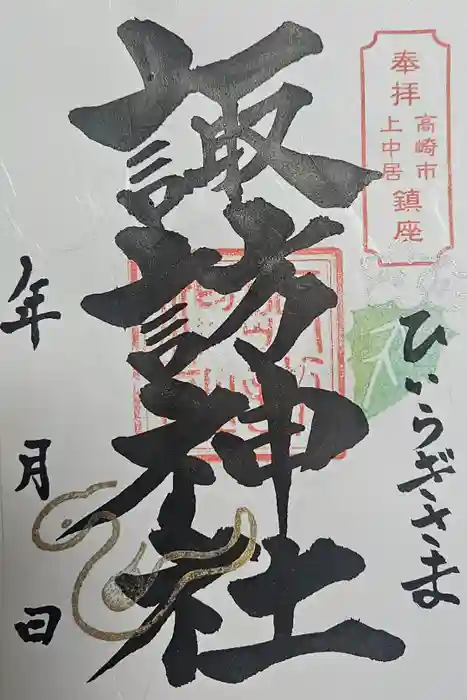 奉拝
高崎市
上中居
鎮座
ひいらぎさま
諏訪神社
年 月 日